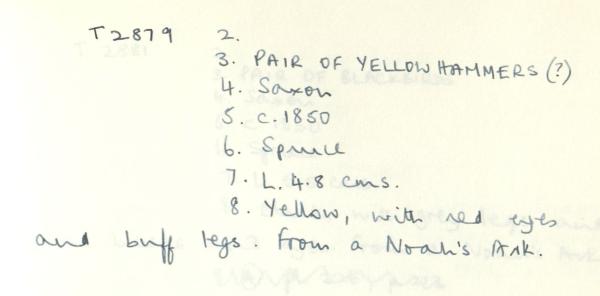 T2879 2.
3. PAIR OF YELLOWHAMMERS (?)
4. Saxon
5. c.1850
6. Spruce
7. L. 4.8 cms.
8. Yellow, with red eyes
and buff legs. From a Noah's Ark.